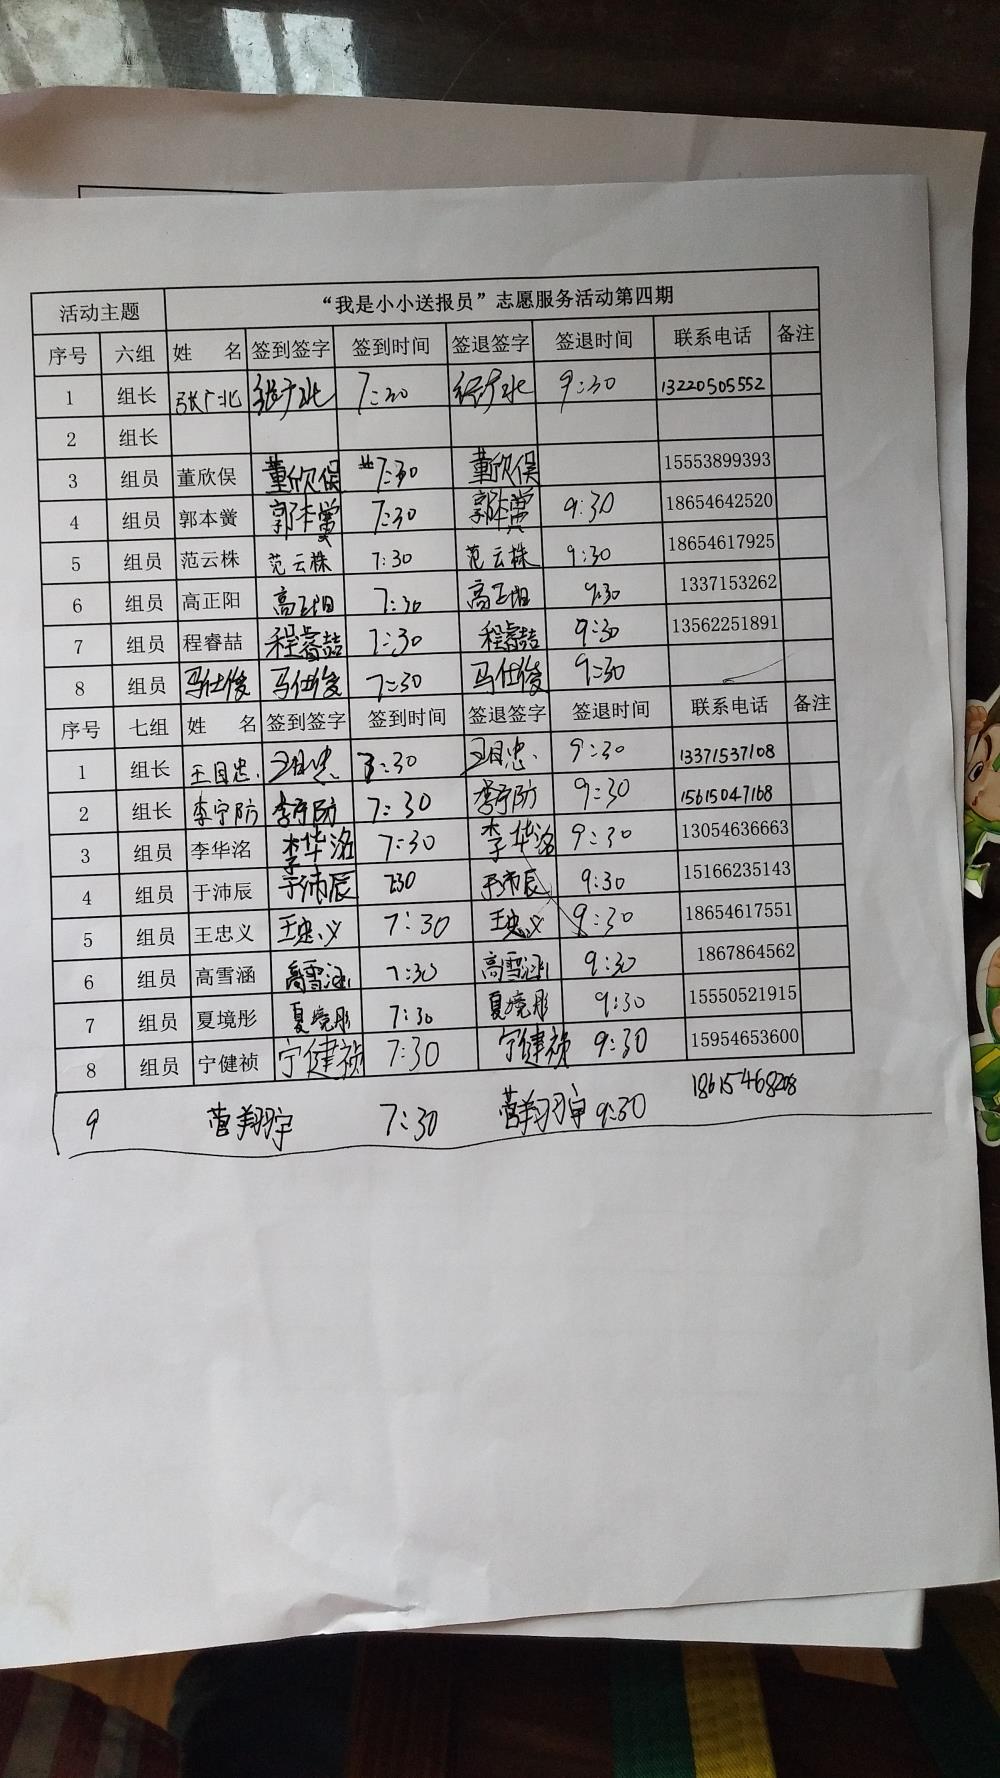 活动主题 “我是小小送报员”志愿服务活动第四期
序号 六组 姓 名 签到签字 签到时间 签退签字 签退时间 联系电话 备注
1 组长 张广北 张广北 7:30 张广北 9:30 13220505552
2 组长
3 组员 董欣俣 董欣俣 7:30 董欣俣 15553899393
4 组员 郭本黉 郭本黉 7:30 郭本黉 9:30 18654642520
5 组员 范云株 范云株 7:30 范云株 9:30 18654617925
6 组员 高正阳 高正阳 7:30 高正阳 9:30 1337153262
7 组员 程睿喆 程睿喆 7:30 程睿喆 9:30 13562251891
8 组员 马仕俊 马仕俊 7:30 马仕俊 9:30
序号 七组 姓 名 签到签字 签到时间 签退签字 签退时间 联系电话 备注
1 组长 王目忠 王目忠 7:30 王目忠 9:30 13371537108
2 组长 李宁防 李宁防 7:30 李宁防 9:30 15615047168
3 组员 李华洺 李华洺 7:30 李华洺 9:30 13054636663
4 组员 于沛辰 于沛辰 7:30 于沛辰 9:30 15166235143
5 组员 王忠义 王忠义 7:30 王忠义 9:30 18654617551
6 组员 高雪涵 高雪涵 7:30 高雪涵 9:30 1867864562
7 组员 夏境彤 夏境彤 7:30 夏境彤 9:30 15550521915
8 组员 宁健祯 宁健祯 7:30 宁健祯 9:30 15954653600
9 营翔宇 7:30 营翔宇 9:30 18615468208